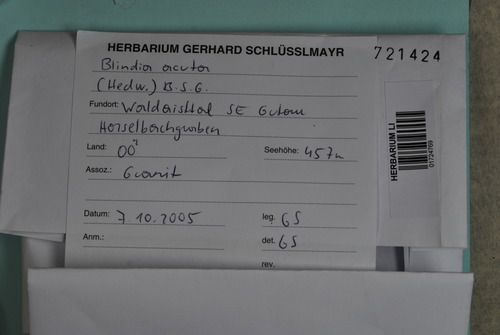 HERBARIUM GERHARD SCHLÜSSLMAYR
721424
Blindia acuta
(Hedw.) B.S.G.
Fundort: Waldaisttal SE Gutau
Hörselbachgraben
Land: OÖ Seehöhe: 457m
Assoz.: Granit
Datum: 7.10.2005 leg. GS
Anm.: det. GS
rev.
HERBARIUM LI
01724769